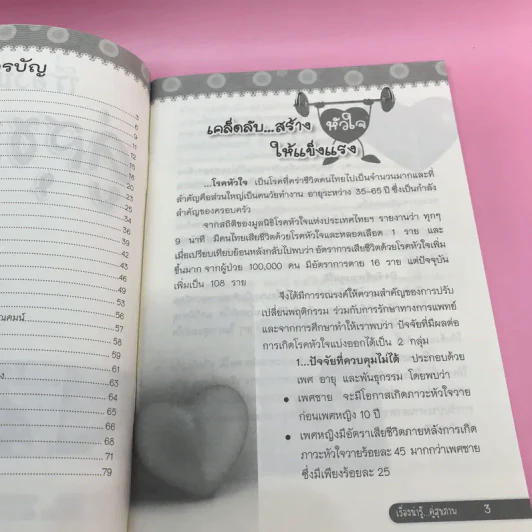 รบัญ
3
6
9
11
12
15
20
23
25
34
36
38
39
40
43
45
46
49
53
56
ณคมน์
57
79
61
63
64
65
66
68
71
79
เคล็ดลับ...สร้าง หัวใจ
ให้แข็งแรง
...โรคหัวใจ เป็นโรคที่คร่าชีวิตคนไทยไปเป็นจำนวนมากและที่
สำคัญคือส่วนใหญ่เป็นคนวัยทำงาน อายุระหว่าง 35-65 ปี ซึ่งเป็นกำลัง
สำคัญของครอบครัว
จากสถิติของมูลนิธิโรคหัวใจแห่งประเทศไทยฯ รายงานว่า ทุกๆ
9 นาที มีคนไทยเสียชีวิตด้วยโรคหัวใจและหลอดเลือด 1 ราย และ
เมื่อเปรียบเทียบย้อนหลังกลับไปพบว่า อัตราการเสียชีวิตด้วยโรคหัวใจเพิ่ม
ขึ้นมาก จากผู้ป่วย 100,000 คน มีอัตราการตาย 16 ราย แต่ปัจจุบัน
เพิ่มเป็น 108 ราย
จึงได้มีการรณรงค์ให้ความสำคัญของการปรับ
เปลี่ยนพฤติกรรม ร่วมกับการรักษาทางการแพทย์
และจากการศึกษาทำให้เราพบว่า ปัจจัยที่มีผลต่อ
การเกิดโรคหัวใจแบ่งออกได้เป็น 2 กลุ่ม
1...ปัจจัยที่ควบคุมไม่ได้ ประกอบด้วย
เพศ อายุ และพันธุกรรม โดยพบว่า
● เพศชาย จะมีโอกาสเกิดภาวะหัวใจวาย
ก่อนเพศหญิง 10 ปี
● เพศหญิงมีอัตราเสียชีวิตภายหลังการเกิด
ภาวะหัวใจวายร้อยละ 45 มากกว่าเพศชาย
ซึ่งมีเพียงร้อยละ 25
เรื่องน่ารู้...คู่สุขภาพ 3